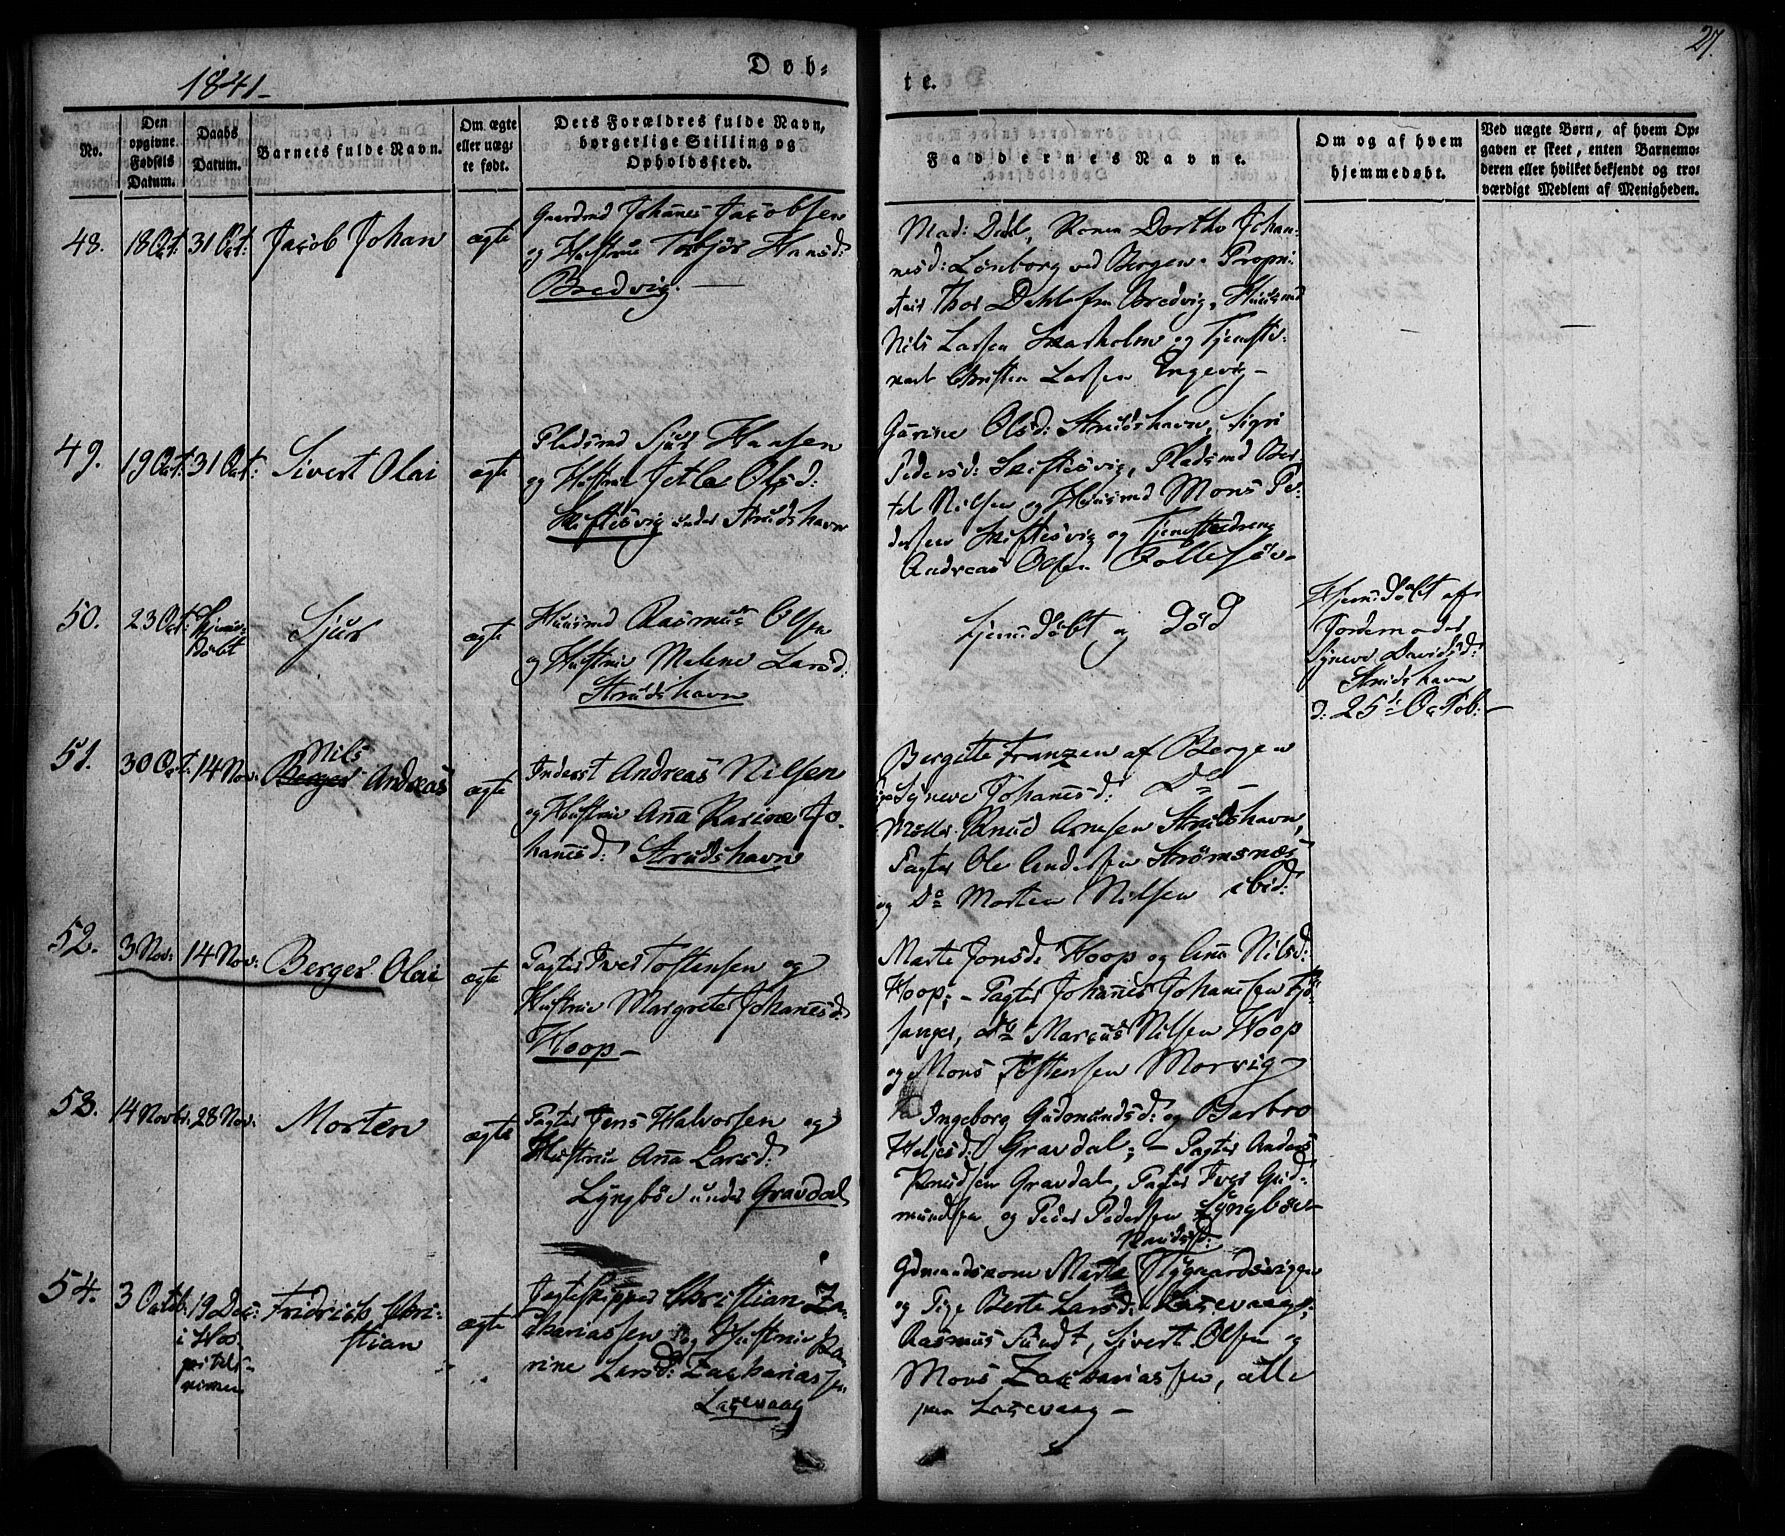 1841
Døb-
te.
27.
No.
Den opgivne Fødsels Datum.
Daabs Datum.
Barnets fulde Navn.
Om ægte eller uægte født.
Dets Forældres fulde Navn, borgerlige Stilling og Opholdssted.
Faddernes Navne.
Om og af hvem hjemmedøbt.
Ved uægte Børn, af hvem Opgaven er skeet, enten Barnemoderen eller hvilket bekjendt og troværdigt Medlem af Menigheden.
48. 18 Oct: 31 Oct: Jacob Johan ægte
Gaardmd Johannes Jacobsen
og Hustrue Torbjør Hansd:
Bredvig.
Mad: Dahl, Konen Dorthe Johan-
nesd: Lønborg ved Bergen. Propri-
tair Thos Dahl fra Bredvig, Huusmd
Nils Larsen Skarholm og Tjeneste-
karl Christen Larsen Engevig
49. 19 Oct: 31 Oct: Sivert Olai ægte
Pladsmd Sjur Hansen
og Hustrue Jetla Olsd:
Skiftesvig under Strudshavn
Gurine Olsd: Strudshavn, Sigri
Pedersd: Skiftesvig, Pladsmd Ber-
tel Nilsen og Huusmd Mons Pe-
dersen Skiftesvig og Tjenestedreng
Andreas Olsen Follesøe
50. 23 Oct: Hjemme-
døbt
Sjur ægte
Huusmd Rasmus Olsen
og Hustrue Malene Larsd:
Strudshavn
Hjemdøbt og død
Hjemdøbt af
Jordemoder
Synneve Davidsd:
Strudshavn
d: 25de Octob:
51. 30 Oct: 14 Nov:
Nils
Berger Andreas ægte
Inderst Andreas Nilsen
og Hustrue Anna Karine Jo-
hannesd: Strudshavn
Bergitte Franzen af Bergen
Pige Synneve Johannesd: Do
Møller Knud Arnesen Strudshavn,
Pagter Ole Andersen Strømsnæs
og Do Morten Nilsen ibid:
52. 3 Nov: 14 Nov: Berger Olai ægte
Pagter Iver Tostensen og
Hustrue Margrete Johannesd:
Hoop
Marte Jonsd: Hoop og Anna Nilsd:
Hoop; Pagter Johannes Johannesen Fjø-
sanger, do Marcus Nilsen Hoop
og Mons Tostensen Morvig
53. 14 Novbr. 28 Nov: Morten ægte
Pagter Jens Halvorsen og
Hustrue Anna Larsd:
Lyngbøe under Gravdal
Ingeborg Gudmundsd: og Barbro
Heljesd: Gravdal; Pagter Anders
Knudsen Gravdal, Pagter Iver Gud-
mundsen og Peder Pedersen Lyngbøe
54. 3 Octob: 19 Dec:
i Hos-
pitels-
Fridrich Chri-
stian ægte
Jagteskipper Christian Za-
chariassen og Hustrue Ka-
rine Larsd: Zachariassen
Laxevaag
Knudsd:
Gdmandskone Marte Nygaardsvigen
og Pige Berte Larsd: Laxevaag;
Rasmus Sundt, Sivert Olsen og
Mons Zachariassen, alle
paa Laxevaag